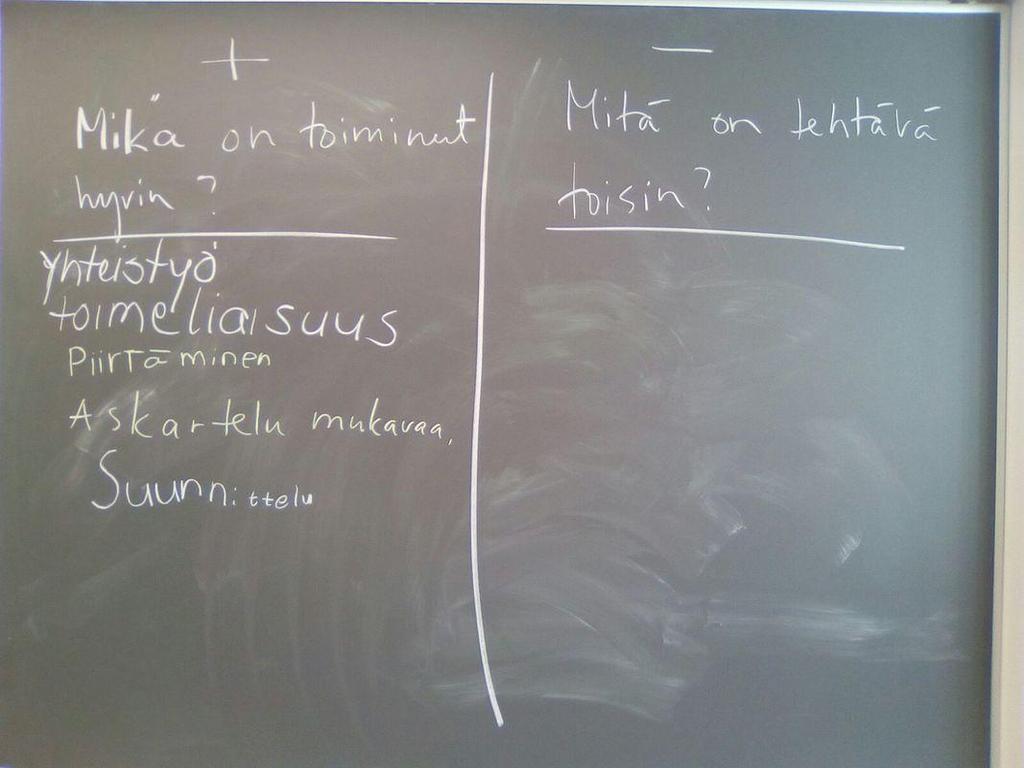 +
Mikä on toiminut
hyvin?
yhteistyö
toimeliaisuus
Piirtäminen
Askartelu mukavaa.
Suunnittelu
−
Mitä on tehtävä
toisin?